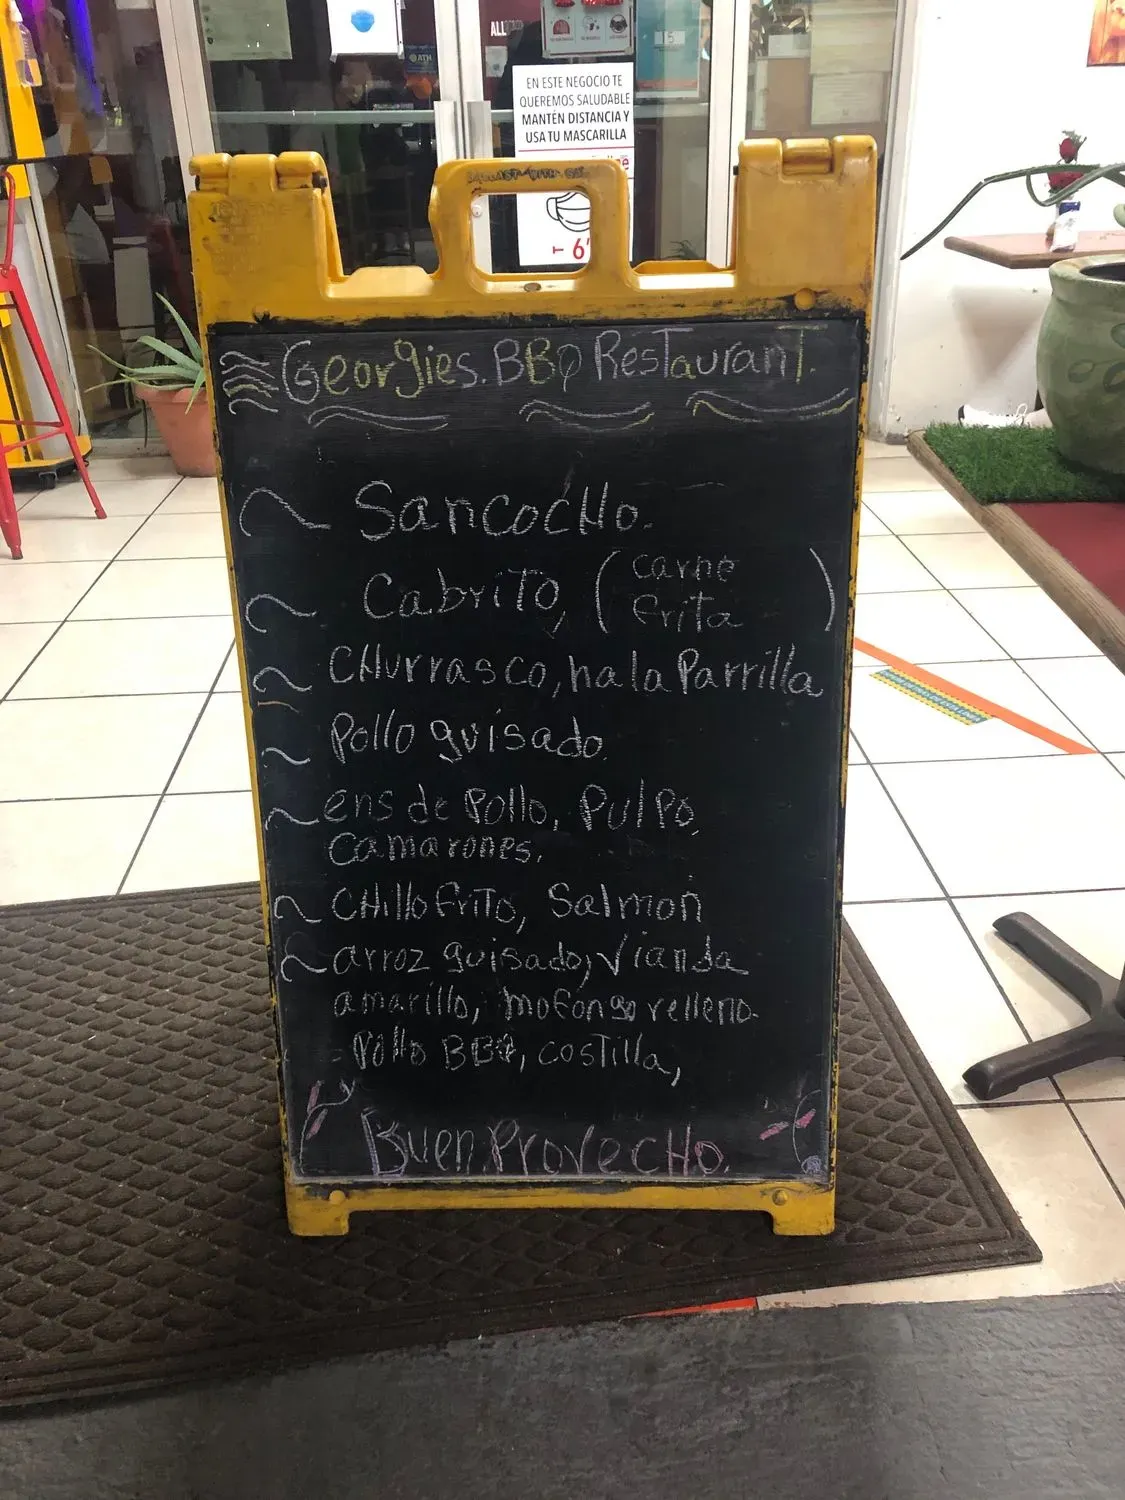 ALL
ATH
15
EN ESTE NEGOCIO TE
QUEREMOS SALUDABLE
MANTÉN DISTANCIA Y
USA TU MASCARILLA
6'
Georgies. BBQ Restaurant.
Sancocho.
Cabrito, (carne
frita)
Churrasco, ha la Parrilla
Pollo guisado.
ens de Pollo, Pulpo,
Camarones.
Chillo frito, Salmon
arroz guisado, Vianda
amarillo, mofongo relleno.
Pollo BBQ, costilla,
Buen Provecho.